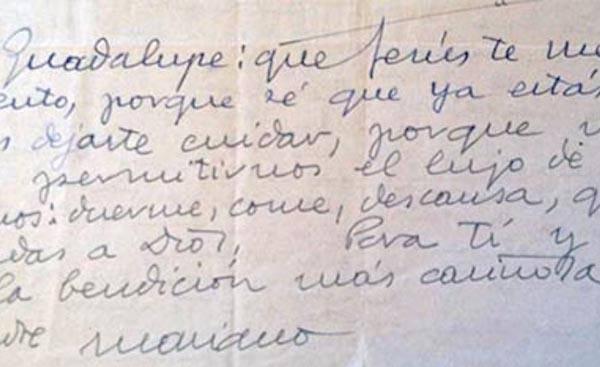 Guadalupe: que Jesús te
ento, porque sé que ya estás
dejarte cuidar, porque
permitirnos el lujo de
nos: duerme, come, descansa, q
das a Dios, Para tí y
la bendición más cariñosa
mariano